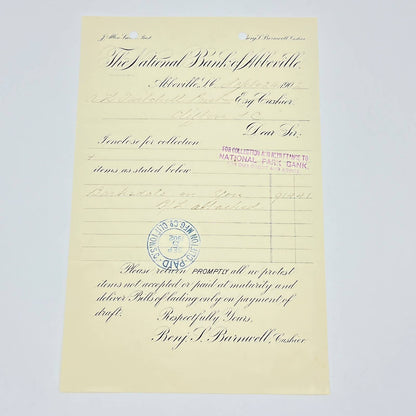 J. Allen Smith, Prest.
Benj. S. Barnwell, Cashier
The National Bank of Abbeville.
Abbeville, S.C. Sept. 24 190
Esq Cashier.
Clifton S C
Dear Sir:
I enclose for collection
FOR COLLECTION AND REMITTANCE TO
NATIONAL PARK BANK,
items as stated below
Barksdale on You
B/L attached
CLIFTON MFG CO. CLIFTON S.C.
PAID
Please return PROMPTLY all no protest
items not accepted or paid at maturity and
deliver Bills of lading only on payment of
draft. Respectfully Yours,
Benj. S. Barnwell, Cashier